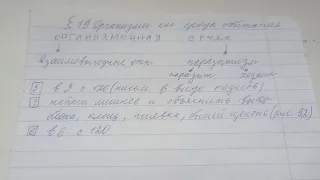 § 19 Организмы как среда обитания
ОРГАНИЗМЕННАЯ СРЕДА
взаимовыгодные отн. паразитизм
паразит хозяин
в 2 с 120 (письм. в виде тезисов)
найти лишнее и объяснить выбор
клещ, пиявка, (рис 92)
в 6 с 120